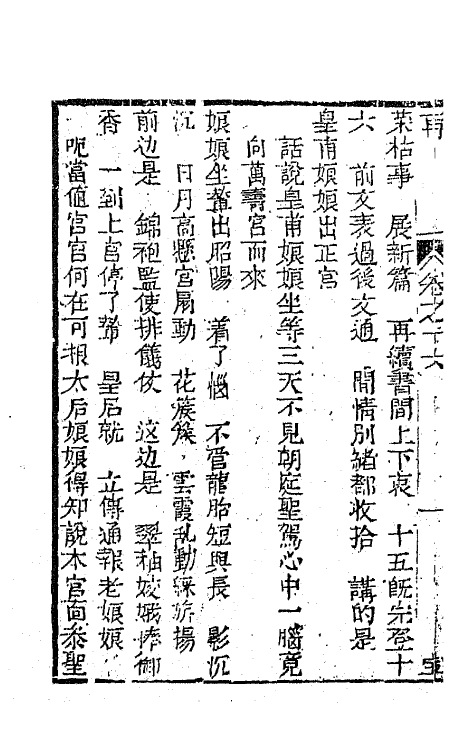 再 卷之十六 一
荣枯事 展新篇 再續書間上下衷 十五既完登十
六 前文表過後文通 閒情別緒都收拾 講的是
皇甫娘娘出正宮
話說皇甫娘娘坐等三天不見朝廷聖駕心中一腦竟
向萬壽宮而來
娘娘坐輦出昭陽 着了惱 不管龍胎短與長 影沉
沉 日月高懸宮扇動 花簇簇 雲霞乱動綵旂揚
前边是 錦袍監使排儀仗 这边是 翠袖嫔娥捧御
香 一到上宮停了輦 皇后就 立傳通報老娘娘
呢當値宮官何在可报太后娘娘得知說本宮面叅聖